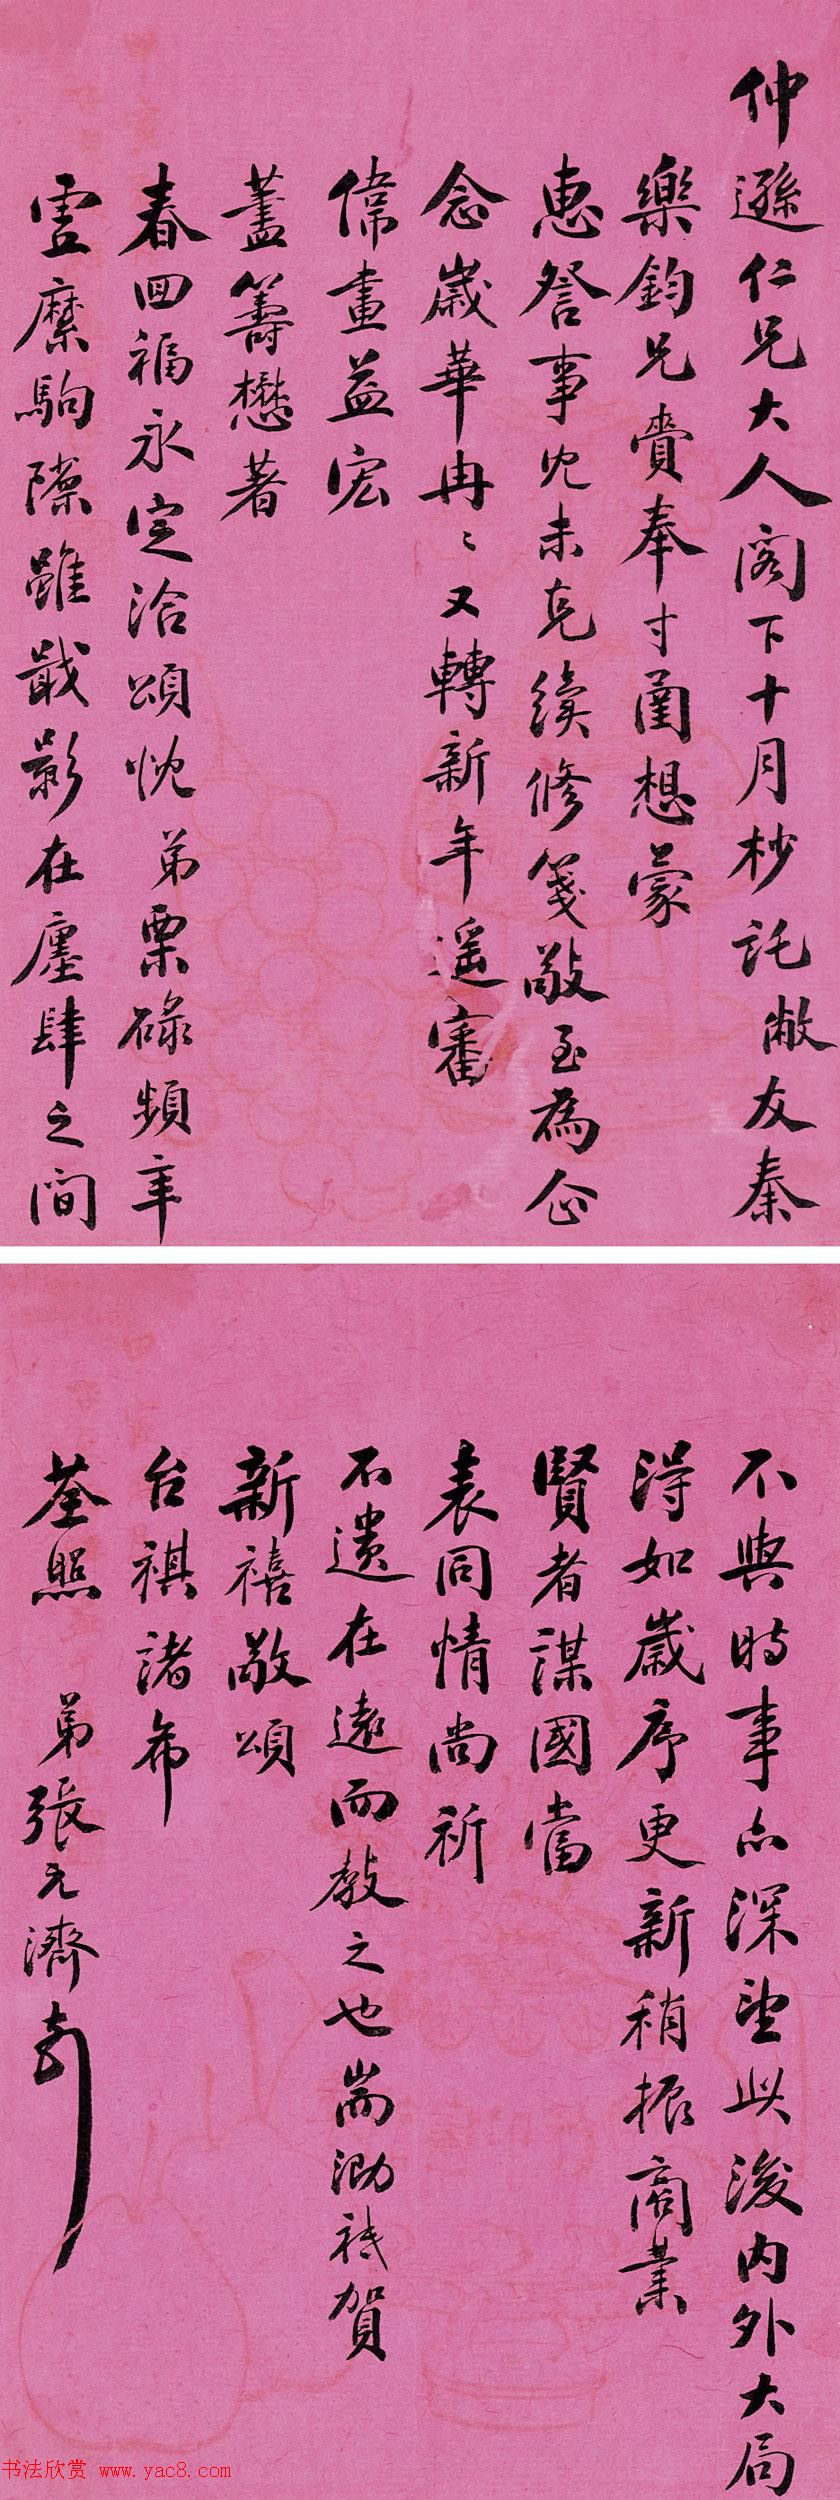 仲遜仁兄大人閣下十月杪託敝友秦
樂鈞兄賷奉寸圅想蒙
惠詧事冗未克續修箋敬至為企
念歲華冉〻又轉新年遥審
偉畫益宏
藎籌懋著
春回福永定洽頌忱弟栗碌頻年
虛縻駒隙雖戢影在廛肆之間
不與時事亦深望此後內外大局
得如歲序更新稍振商業
賢者謀國當
表同情尚祈
不遺在遠而教之也耑泐祇賀
新禧敬頌
台祺諸希
荃照 弟張元濟
书法欣赏 www.yac8.com